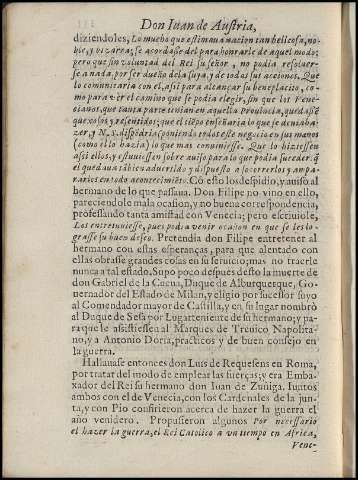 Don Iuan de Austria,
diziendoles, Lo mucho que estimaua nacion tan bellicosa, no-
ble, y bizarra; se acordasse del para honrarle de aquel modo;
pero que sin voluntad del Rei su señor, no podia resoluer-
se a nada, por ser dueño de la suya, y de todas sus acciones. Que
lo comunicaria con el, assi para alcançar su beneplacito, co-
mo para ver el camino que se podia elegir, sin que los Vene-
cianos, que tanta parte tenian en aquella Prouincia, quedassē
quexosos, y resentidos; que el tiēpo enseñaria lo que se deuia ha-
zer, y N. S. dispōdria (poniendo todo este negocio en sus manos
(como ello hazia) lo que mas conuiniesse. Que lo hiziessen
assi ellos, y estuuiessen sobre auiso para lo que podia suceder. q̄
el quedaua tābiē aduertido, y dispuesto a socorrerlos y ampa-
rarlos en todo acontecimiēto. Cō esto los despidio, y auisò al
hermano de lo que passaua. Don Filipe no vino en ello,
pareciendole mala ocasion, y no buena correspondencia,
professando tanta amistad con Venecia; pero escriuiole,
Los entretuuiesse, pues podia venir ocasion en que se les lo-
grasse su buen desseo. Pretendia don Filipe entretener al
hermano con estas esperanças, para que alentado con
ellas obrasse grandes cosas en su seruicio; mas no traerle
nunca a tal estado. Supo poco despues desto la muerte de
don Gabriel de la Cueua, Duque de Alburquerque, Go-
uernador del Estado de Milan, y eligio por sucessor suyo
al Comendador mayor de Castilla, y en su lugar nombrò
al Duque de Sesa por Lugarteniente de su hermano; y pa-
ra que le assistiessen al Marques de Treuico Napolita-
no, y a Antonio Doria, practicos y de buen consejo en
la guerra.
Hallauase entonces don Luis de Requesens en Roma,
por tratar del modo de emplear las fuerças; y era Emba-
xador del Rei su hermano don Iuan de Zuñiga. Iuntos
ambos con el de Venecia, con los Cardenales de la jun-
ta, y con Pio confirieron acerca de hazer la guerra el
año venidero. Propusieron algunos Por necessario
el hazer la guerra, el Rei Catolico a un tiempo en Africa,
Vene-